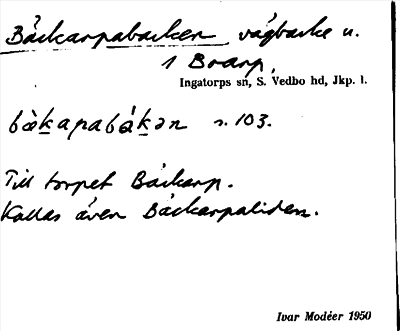 Bäckarpabacken vägbacke u.
1 Boarp,
Ingatorps sn, S. Vedbo hd, Jkp. l.
bæ̀k̠apabák̠ən s. 103.
Till torpet Bäckarp.
Kallas även Bäckarpaliden.
Ivar Modéer 1950